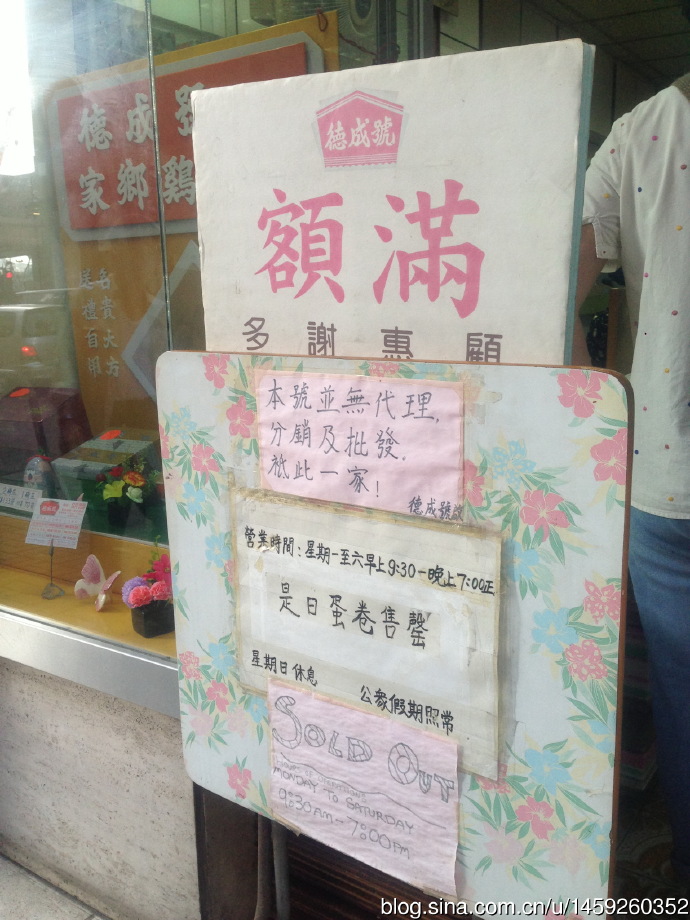 德成號
家鄉鷄
名貴大方
送禮百用
德成號
額滿
多謝惠顧
本號並無代理,
分銷及批發,
祗此一家!
德成號啟
營業時間:星期一至六早上9:30一晚上7:00正
是日蛋卷售罄
星期日休息
公眾假期照常
SOLD OUT
MONDAY TO SATURDAY
9:30AM-7:00PM
blog.sina.com.cn/u/1459260352